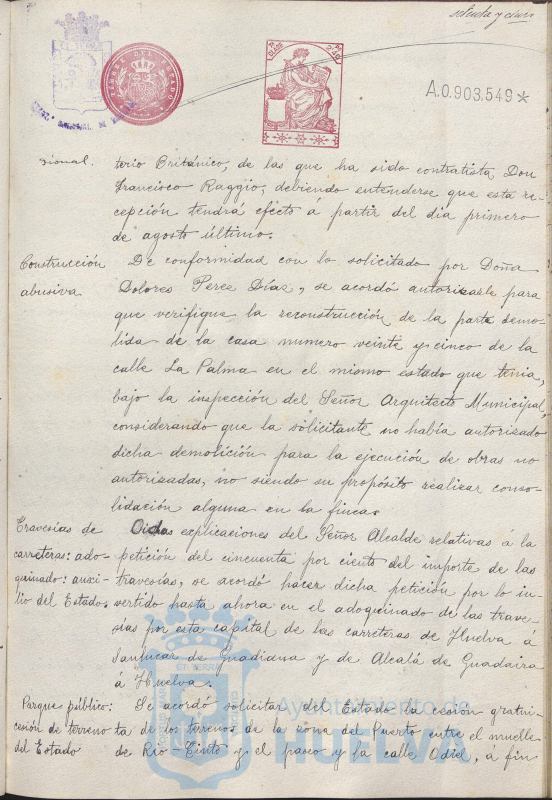 setenta y cinco
A.0.903,549*
TIMBRE DEL ESTADO
sional.
terio Británico, de las que ha sido contratista Don
Francisco Raggio, debiendo entenderse que esta re-
cepción tendrá efecto á partir del dia primero
de agosto último.
Construcción
abusiva
De conformidad con lo solicitado por Doña
Dolores Perez Díaz, se acordó autorizarle para
que verifique la reconstrucción de la parte demo-
lida de la casa numero veinte y cinco de la
calle La Palma en el mismo estado que tenia,
bajo la inspección del Señor Arquitecto Municipal,
considerando que la solicitante no había autorizado
dicha demolición para la ejecución de obras no
autorizadas, no siendo su propósito realizar conso-
lidación alguna en la finca.
Travesias de
carreteras: ado-
quinado: auxi-
lio del Estado.
Oidas explicaciones del Señor Alcalde relativas a la
petición del cincuenta por ciento del importe de las
travesias, se acordó hacer dicha petición por lo in-
vertido hasta ahora en el adoquinado de las trave-
sias por esta capital de las carreteras de Huelva á
Sanlucar de Guadiana y de Alcalá de Guadaira
á Huelva.
Parque público:
cesión de terreno
del Estado
Se acordó solicitar del Estado la cesión gratui-
ta de los terrenos de la zona del Puerto entre el muelle
de Rio-Tinto y el paseo y la calle Odiel, á fin
Ayuntamiento de
HUELVA